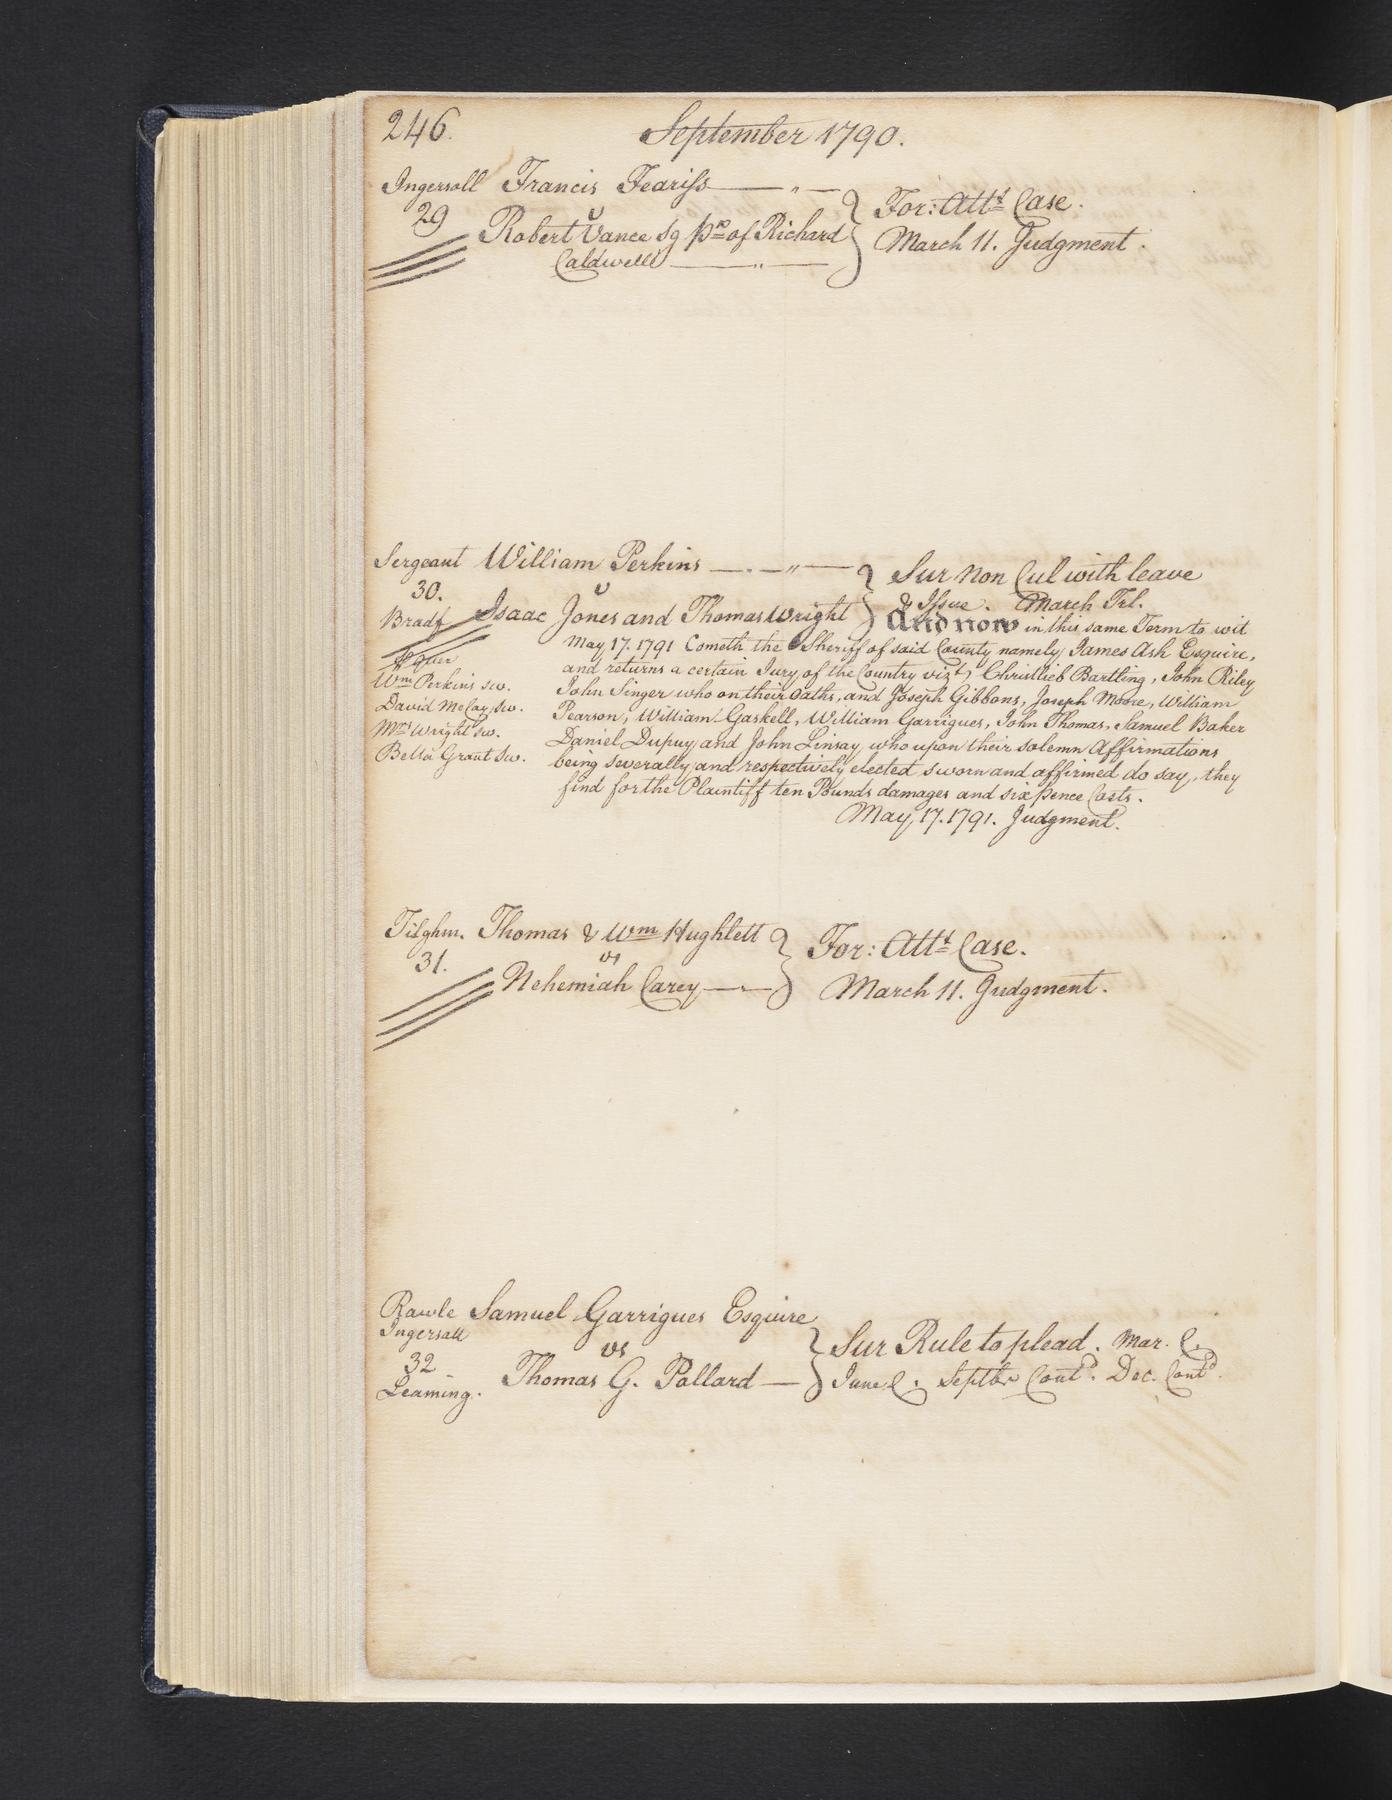 246. September 1790.
Ingersoll Francis Feariss
29 v
Robert Vance Sg Pr of Richard
Caldwell
For: Attt Case.
March 11. Judgment.
Sergeant William Perkins
30. v
Bradf Isaac Jones and Thomas Wright
Sur Non Cul with leave
& Issue. March Trl.
And now in this same Term to wit
May 17. 1791 Cometh the Sheriff of said County namely James Ash Esquire,
and returns a certain Jury of the Country vizt, Christlieb Bartling, John Riley
John Singer who on their Oaths, and Joseph Gibbons, Joseph Moore, William
Pearson, William Gaskell, William Garrigues, John Thomas, Samuel Baker
Daniel Dupuy and John Linsay, who upon their solemn Affirmations
being severally and respectively elected sworn and affirmed do say, they
find for the Plaintiff ten Pounds damages and six pence Costs.
May 17. 1791. Judgment.
Wm Perkins sw.
David McCay sw.
Mrs Wright sw.
Bella Grant sw.
Tilghm. Thomas & Wm Hughlett
31. vs
Nehemiah Carey
For: Attt Case.
March 11. Judgment.
Rawle Samuel Garrigues Esquire
Ingersoll
32 vs
Leaming. Thomas G. Pollard
Sur Rule to plead. Mar. C.
June C. Septbr Contd. Dec. Contd.